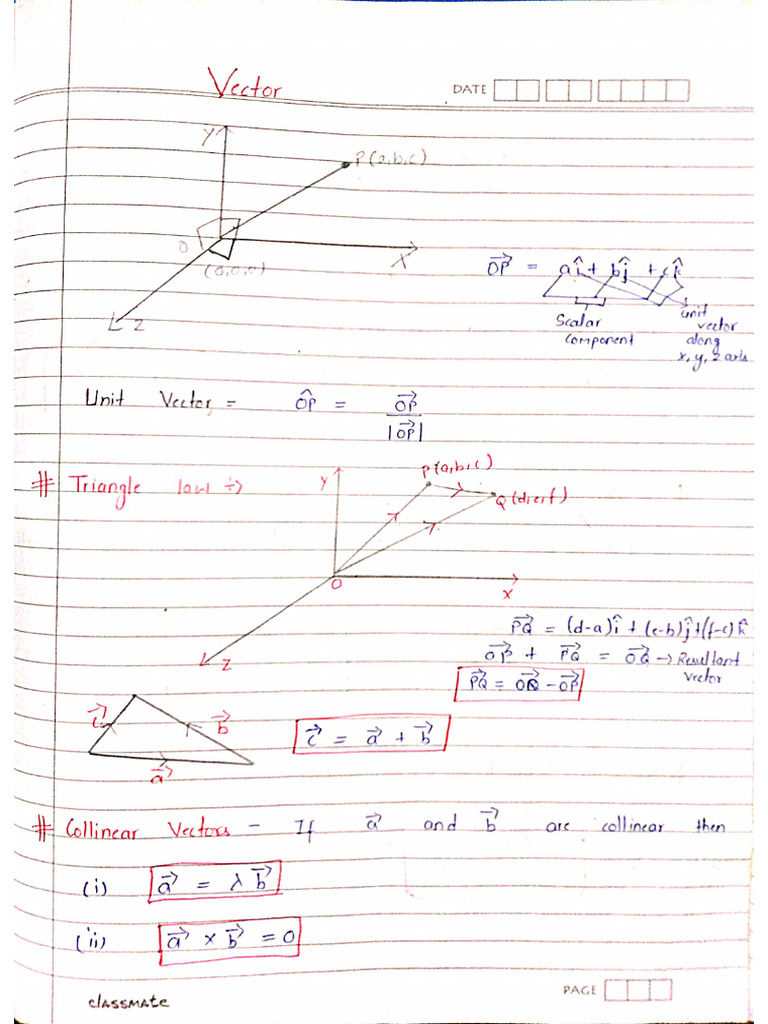 Vector
DATE
Y
P(a,b,c)
O
X
(0,0,0)
Z
→OP = aî + bĵ + ck̂
Scalar component
unit vector along x, y, z axis
Unit Vector = ÔP = →OP / |→OP|
# Triangle law ÷>
Y
P(a,b,c)
Q(d,e,f)
O
X
Z
→PQ = (d-a)î + (e-b)ĵ + (f-c)k̂
→OP + →PQ = →OQ → Resultant vector
→PQ = →OQ - →OP
→c
→b
→a
→c = →a + →b
# Collinear Vectors - If →a and →b are collinear then
(i) →a = λ→b
(ii) →a × →b = 0
PAGE
classmate